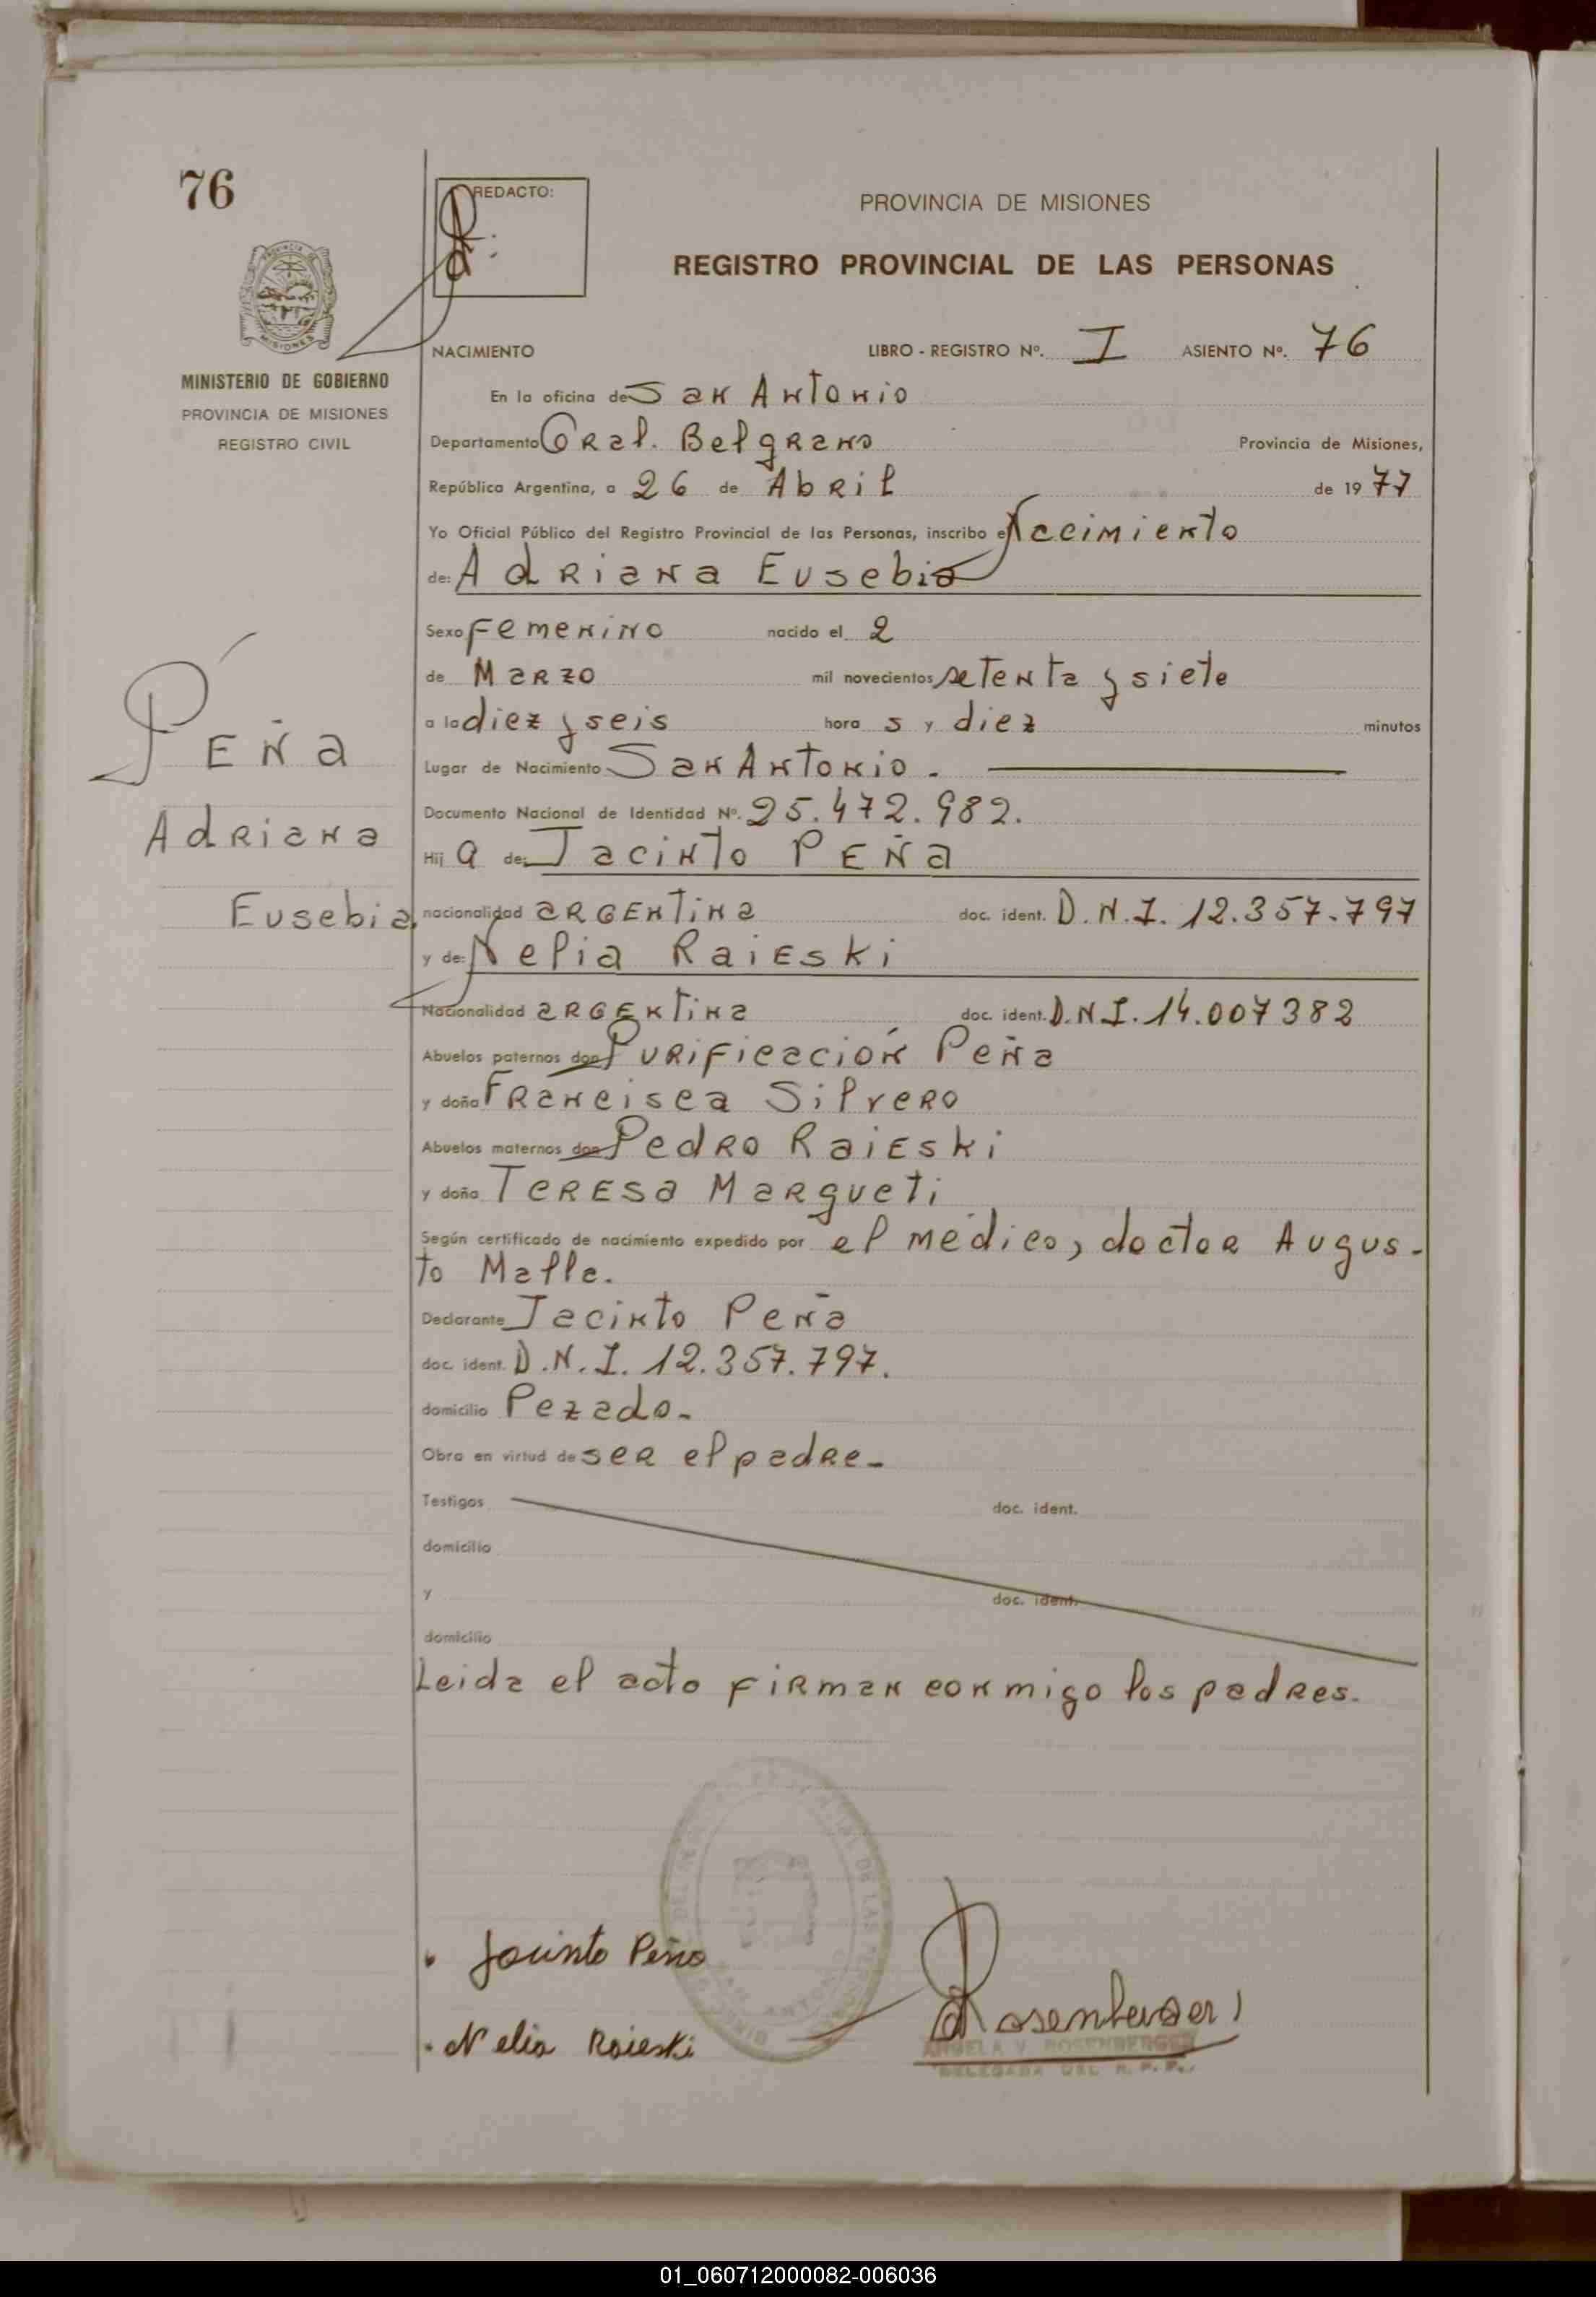 76
REDACTO:
PROVINCIA DE MISIONES
REGISTRO PROVINCIAL DE LAS PERSONAS
PROVINCIA DE
MISIONES
MINISTERIO DE GOBIERNO
PROVINCIA DE MISIONES
REGISTRO CIVIL
NACIMIENTO LIBRO - REGISTRO Nº. I ASIENTO Nº. 76
En la oficina de San Antonio
Departamento Gral. Belgrano Provincia de Misiones,
República Argentina, a 26 de Abril de 1977
Yo Oficial Público del Registro Provincial de las Personas, inscribo el Nacimiento
de: Adriana Eusebia
Sexo Femenino nacido el 2
de Marzo mil novecientos setenta y siete
a la diez y seis hora s y diez minutos
Lugar de Nacimiento San Antonio.
Documento Nacional de Identidad Nº. 25.472.982.
Hij a de: Jacinto Peña
nacionalidad argentina doc. ident. D.N.I. 12.357.797
y de: Nelia Raieski
Nacionalidad argentina doc. ident. D.N.I. 14.007382
Abuelos paternos don Purificación Peña
y doña Francisca Silvero
Abuelos maternos don Pedro Raieski
y doña Teresa Margueti
Según certificado de nacimiento expedido por el médico, doctor Augus-
to Malla.
Declarante Jacinto Peña
doc. ident. D.N.I. 12.357.797.
domicilio Pezado.
Obra en virtud de ser el padre.
Testigos doc. ident.
domicilio
y doc. ident.
domicilio
Leida el acto firman conmigo los padres.
Peña
Adriana
Eusebia.
Jacinto Peña
Nelia Raieski
Rosenberger
ANGELA V. ROSENBERGER
DELEGADA DEL R. P. P.
01_060712000082-006036